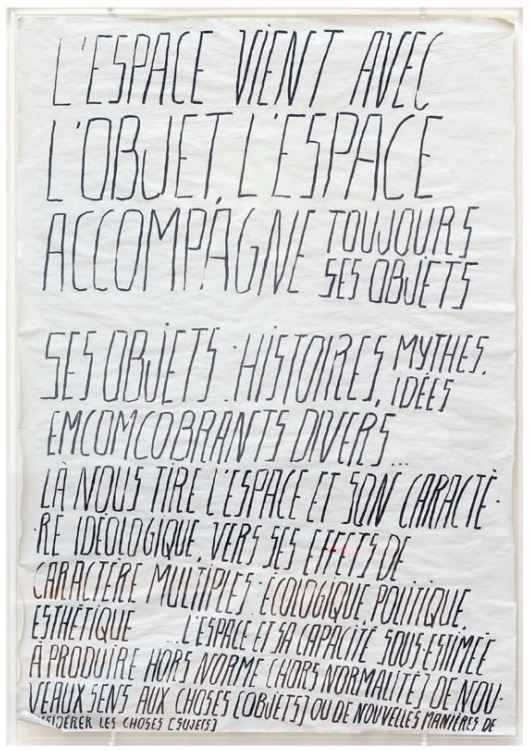 L'ESPACE VIENT AVEC
L'OBJET, L'ESPACE
ACCOMPAGNE TOUJOURS
SES OBJETS
SES OBJETS : HISTOIRES, MYTHES,
IDÉES
EMCOMCOBRANTS DIVERS...
LÀ NOUS TIRE L'ESPACE ET SON CARACTÈ-
-RE IDEOLOGIQUE, VERS SES EFFETS DE
CARACTÈRE MULTIPLES : ÉCOLOGIQUE, POLITIQUE,
ESTHÉTIQUE ... L'ESPACE ET SA CAPACITÉ SOUS-ESTIMÉE
À PRODUIRE HORS NORME [HORS NORMALITÉ] DE NOU-
VEAUX SENS AUX CHOSES [OBJETS] OU DE NOUVELLES MANIÈRES DE
LES CHOSES [SUJETS]